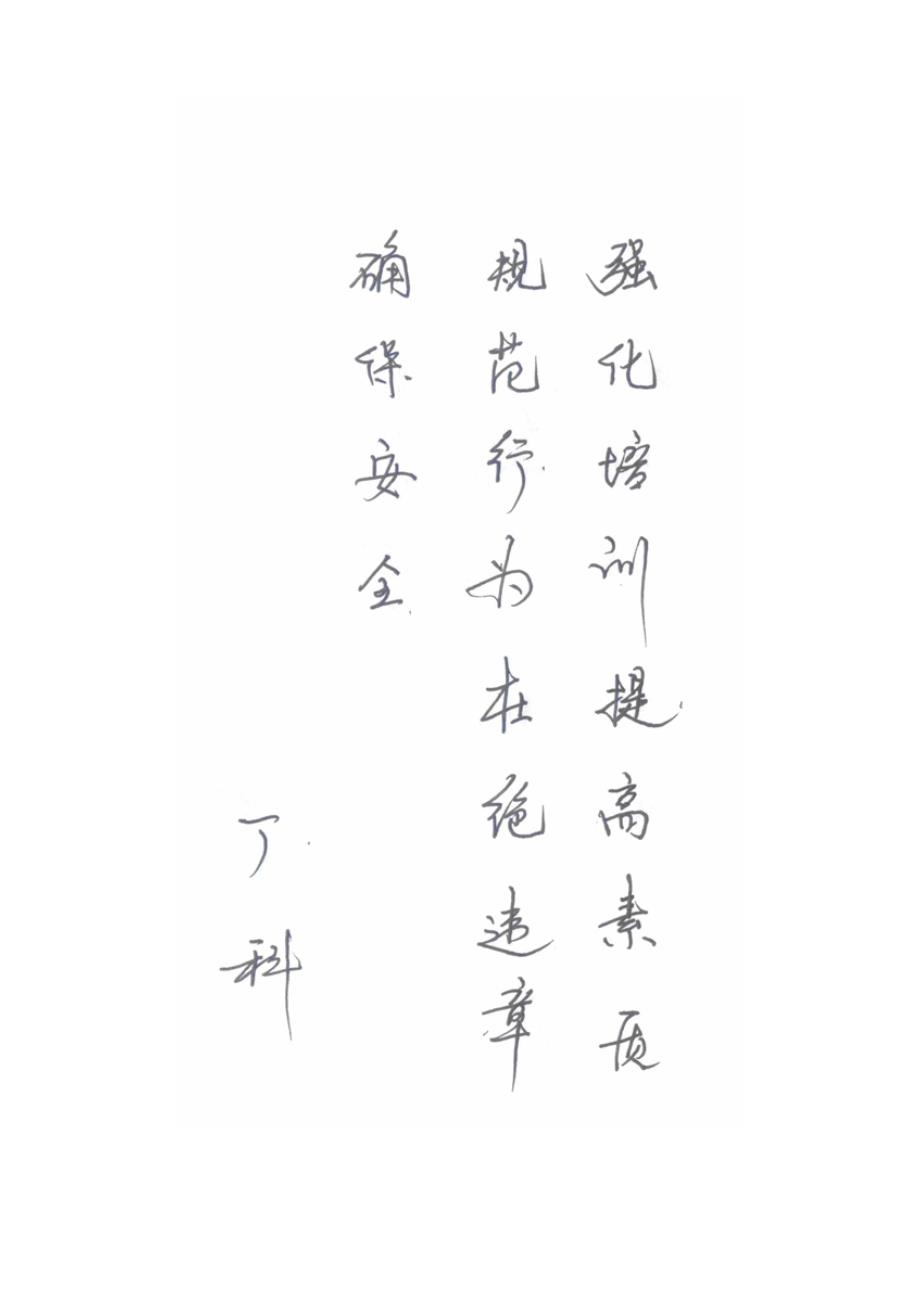 强化培训提高素质
规范行为杜绝违章
确保安全
丁科